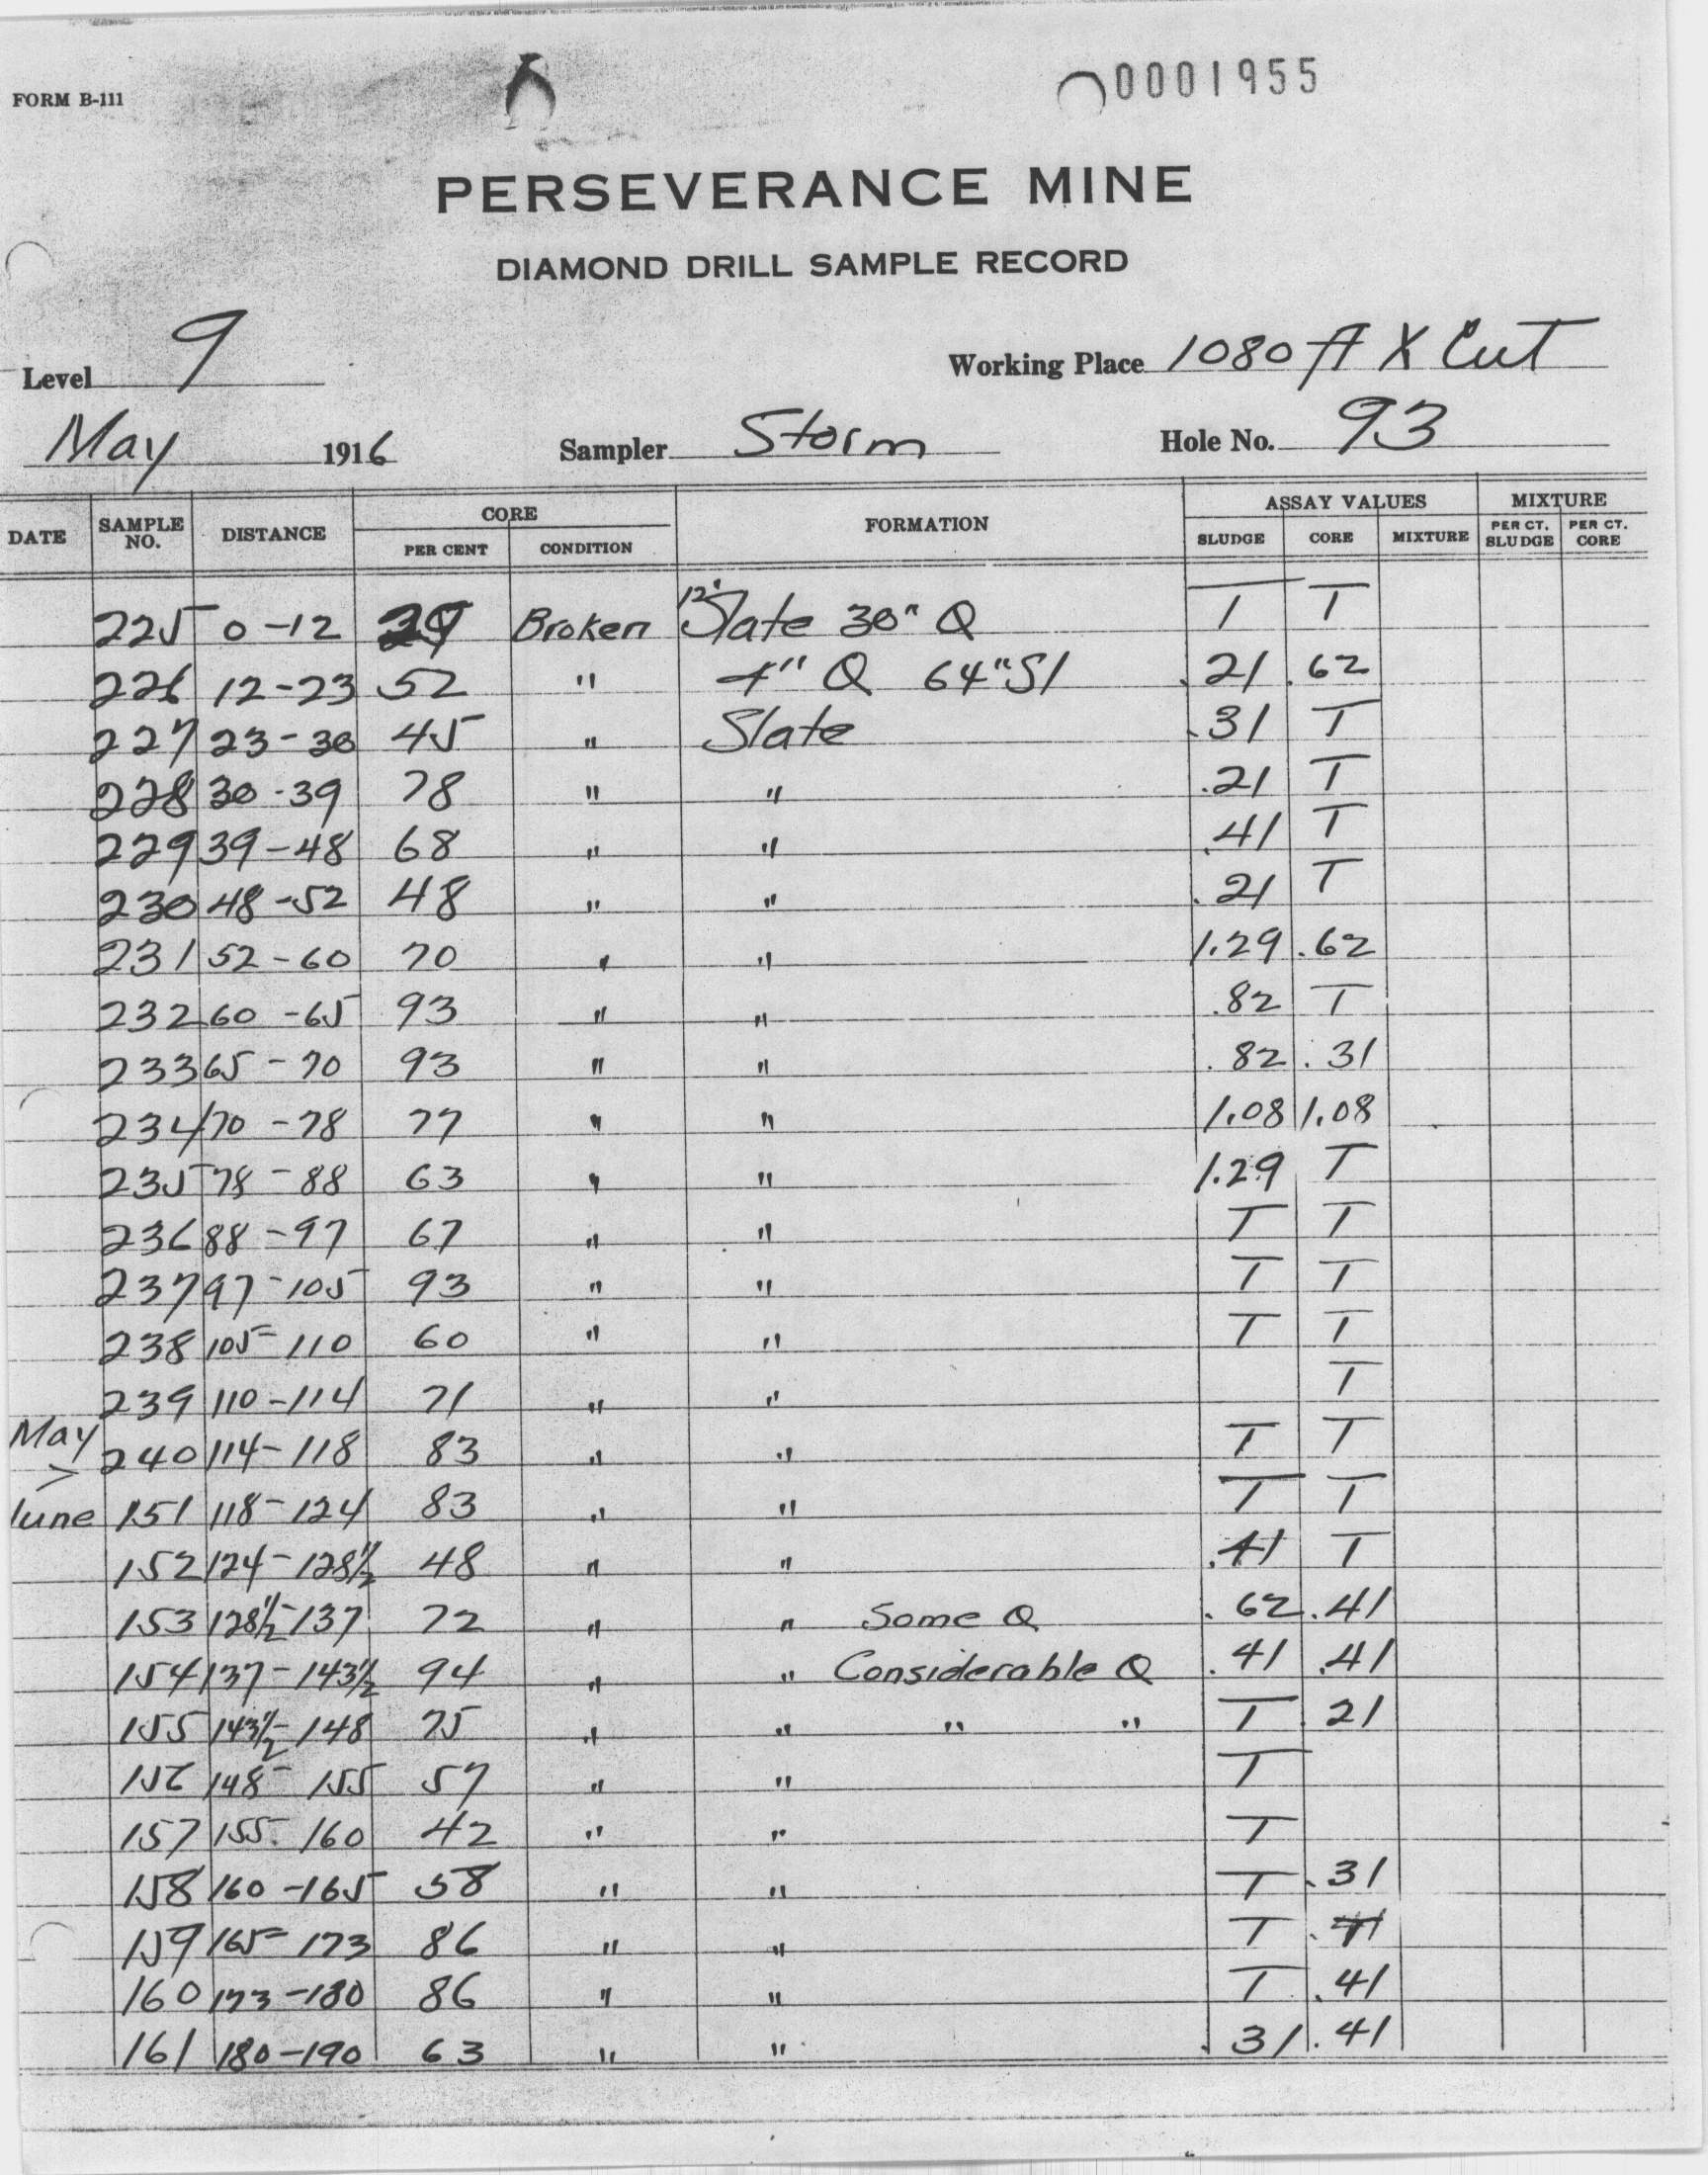 FORM B-111
0001955
PERSEVERANCE MINE
DIAMOND DRILL SAMPLE RECORD
Level 9 Working Place 1080 ft X Cut
May 1916 Sampler Storm Hole No. 93
DATE SAMPLE NO. DISTANCE CORE PER CENT CONDITION FORMATION ASSAY VALUES SLUDGE CORE MIXTURE MIXTURE PER CT. SLUDGE PER CT. CORE
225 0-12 Broken 12" Slate 30" Q T T
226 12-23 52 " 4" Q 64" Sl .21 .62
227 23-30 45 " Slate .31 T
228 30-39 78 " " .21 T
229 39-48 68 " " .41 T
230 48-52 48 " " .21 T
231 52-60 70 " " 1.29 .62
232 60-65 93 " " .82 T
233 65-70 93 " " .82 .31
234 70-78 77 " " 1.08 1.08
235 78-88 63 " " 1.29 T
236 88-97 67 " " T T
237 97-105 93 " " T T
238 105-110 60 " " T T
239 110-114 71 " " T
May > 240 114-118 83 " " T T
June 151 118-124 83 " " T T
152 124-128 1/2 48 " " .41 T
153 128 1/2-137 72 " " Some Q .62 .41
154 137-143 1/2 94 " " Considerable Q .41 .41
155 143 1/2-148 75 " " " " T .21
156 148-155 57 " " T
157 155-160 42 " " T
158 160-165 58 " " T .31
159 165-173 86 " " T
160 173-180 86 " " T .41
161 180-190 63 " " .31 .41